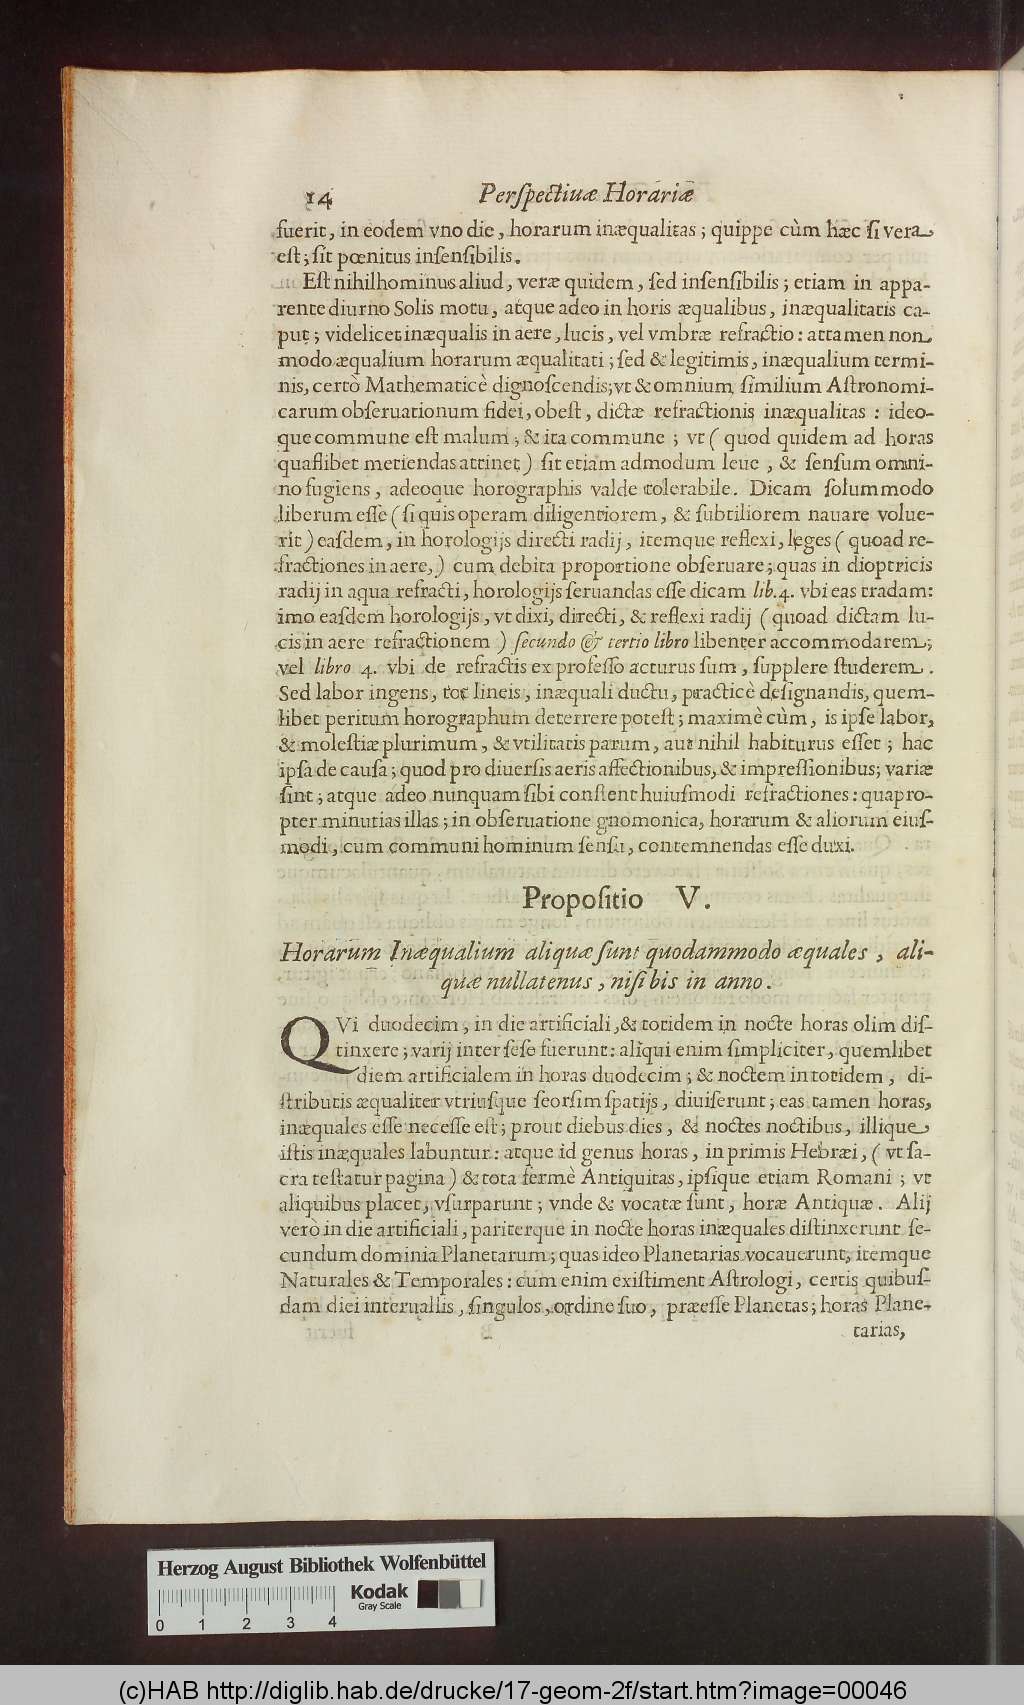 14 Perſpectiuæ Horariæ
fuerit, in eodem vno die, horarum inæqualitas; quippe cùm hæc ſi vera
eſt; ſit pœnitus inſenſibilis.
Eſt nihilhominus aliud, veræ quidem, ſed inſenſibilis; etiam in appa-
rente diurno Solis motu, atque adeo in horis æqualibus, inæqualitatis ca-
put; videlicet inæqualis in aere, lucis, vel vmbræ refractio: attamen non
modo æqualium horarum æqualitati; ſed & legitimis, inæqualium termi-
nis, certò Mathematicè dignoſcendis; vt & omnium ſimilium Aſtronomi-
carum obſeruationum fidei, obeſt, dictæ refractionis inæqualitas: ideo-
que commune eſt malum; & ita commune; vt (quod quidem ad horas
quaſlibet metiendas attinet) ſit etiam admodum leue, & ſenſum omni-
no fugiens, adeoque horographis valde tolerabile. Dicam ſolummodo
liberum eſſe (ſi quis operam diligentiorem, & ſubtiliorem nauare volue-
rit) eaſdem, in horologijs directi radij, itemque reflexi, leges (quoad re-
fractiones in aere,) cum debita proportione obſeruare; quas in dioptricis
radij in aqua refracti, horologijs ſeruandas eſſe dicam lib. 4. vbi eas tradam:
imo eaſdem horologijs, vt dixi, directi, & reflexi radij (quoad dictam lu-
cis in aere refractionem) ſecundo & tertio libro libenter accommodarem;
vel libro 4. vbi de refractis ex profeſſo acturus ſum, ſupplere ſtuderem.
Sed labor ingens, tot lineis, inæquali ductu, practicè deſignandis, quem-
libet peritum horographum deterrere poteſt; maximè cùm, is ipſe labor,
& moleſtiæ plurimum, & vtilitatis parum, aut nihil habiturus eſſet; hac
ipſa de cauſa; quod pro diuerſis aeris affectionibus, & impreſſionibus; variæ
ſint; atque adeo nunquam ſibi conſtent huiuſmodi refractiones: quapro-
pter minutias illas; in obſeruatione gnomonica, horarum & aliorum eiuſ-
modi, cum communi hominum ſenſu, contemnendas eſſe duxi.
Propoſitio V.
Horarum Inæqualium aliquæ ſunt quodammodo æquales, ali-
quæ nullatenus, niſi bis in anno.
QVi duodecim, in die artificiali, & totidem in nocte horas olim diſ-
tinxere; varij inter ſeſe fuerunt: aliqui enim ſimpliciter, quemlibet
diem artificialem in horas duodecim; & noctem in totidem, di-
ſtributis æqualiter vtriuſque ſeorſim ſpatijs, diuiſerunt; eas tamen horas,
inæquales eſſe neceſſe eſt; prout diebus dies, & noctes noctibus, illique
iſtis inæquales labuntur: atque id genus horas, in primis Hebræi, (vt ſa-
cra teſtatur pagina) & tota fermè Antiquitas, ipſique etiam Romani; vt
aliquibus placet, vſurparunt; vnde & vocatæ ſunt, horæ Antiquæ. Alij
verò in die artificiali, pariterque in nocte horas inæquales diſtinxerunt ſe-
cundum dominia Planetarum; quas ideo Planetarias vocauerunt, itemque
Naturales & Temporales: cum enim exiſtiment Aſtrologi, certis quibuſ-
dam diei interuallis, ſingulos, ordine ſuo, præeſſe Planetas; horas Plane-
tarias,
Herzog August Bibliothek Wolfenbüttel
Kodak
Gray Scale
0 1 2 3 4
(c)HAB http://diglib.hab.de/drucke/17-geom-2f/start.htm?image=00046